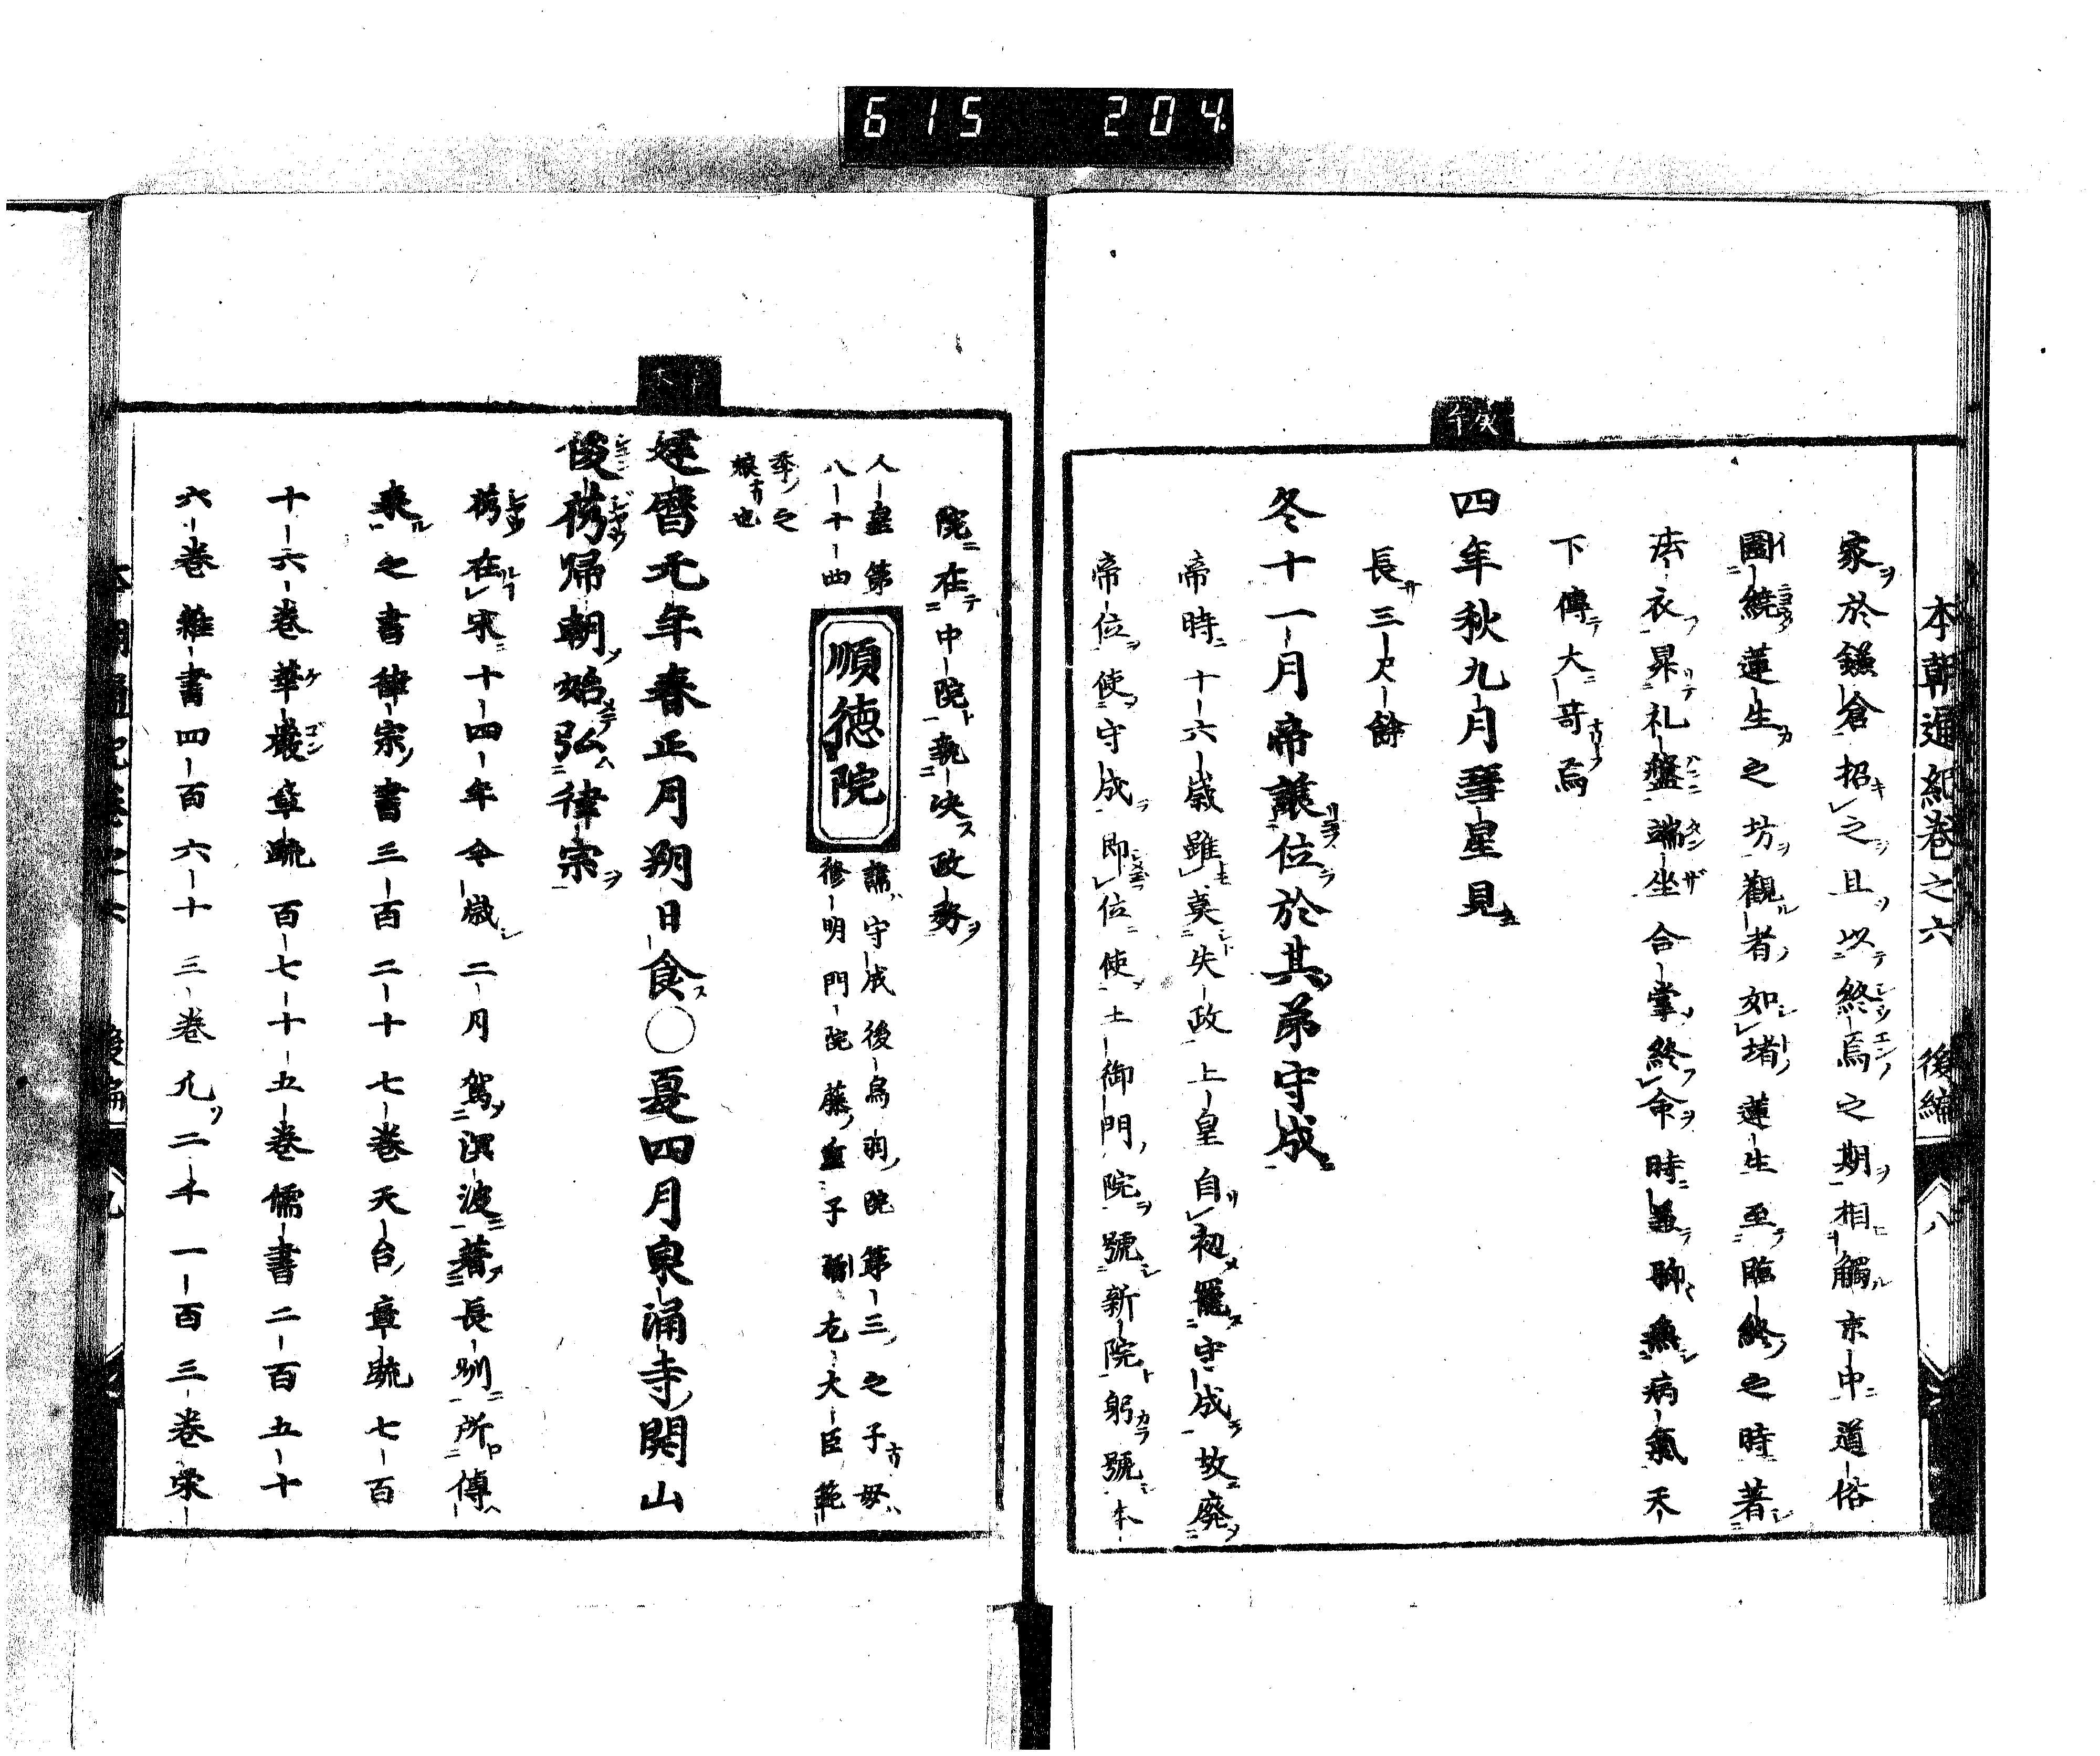 615 204
本朝通紀卷之六 後編 八
家於鎌倉招之且以終焉之期相觸京中道俗
圍繞蓮生之坊觀者如堵蓮生至臨終之時著
法衣昇礼盤端坐合掌終命時並聊無病氣天
下傳大奇焉
四年秋九月彗星見
長三尺餘
冬十一月帝讓位於其弟守成
帝時十六歲雖莫失政上皇自初寵守成故廃
帝位使守成即位使土御門院號新院躬號本
院在中院執決政務
人皇第八十四
順徳院
諱守成後鳥羽院第三之子母
修明門院藤 子 左大臣範
季之
娘也
建曆元年春正月朔日食○夏四月泉涌寺開山
俊芿帰朝始弘律宗
芿在宋十四年今歲二月駕溟波著長州所傳
来之書律宗書三百二十七卷天台章疏七百
十六卷華嚴章疏百七十五卷儒書二百五十
六卷雜書四百六十三卷凡二千一百三卷榮